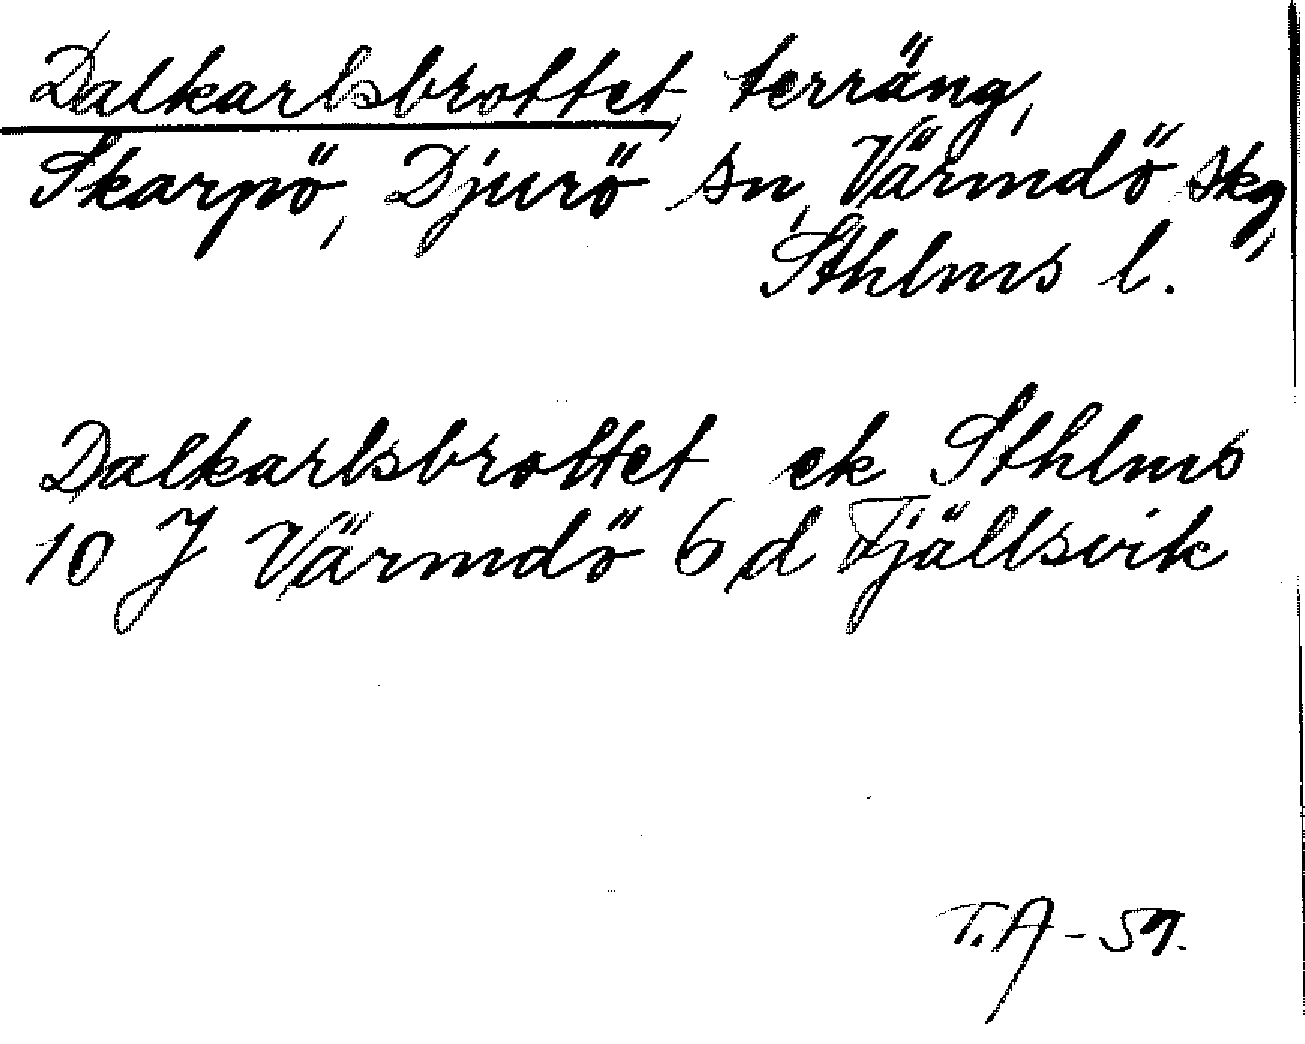 Dalkarlsbrottet, terräng,
Skarpö, Djurö sn, Värmdö skg,
Sthlms l.
Dalkarlsbrottet ek Sthlms
10 J Värmdö 6 d Fjällsvik
T.A - 59.